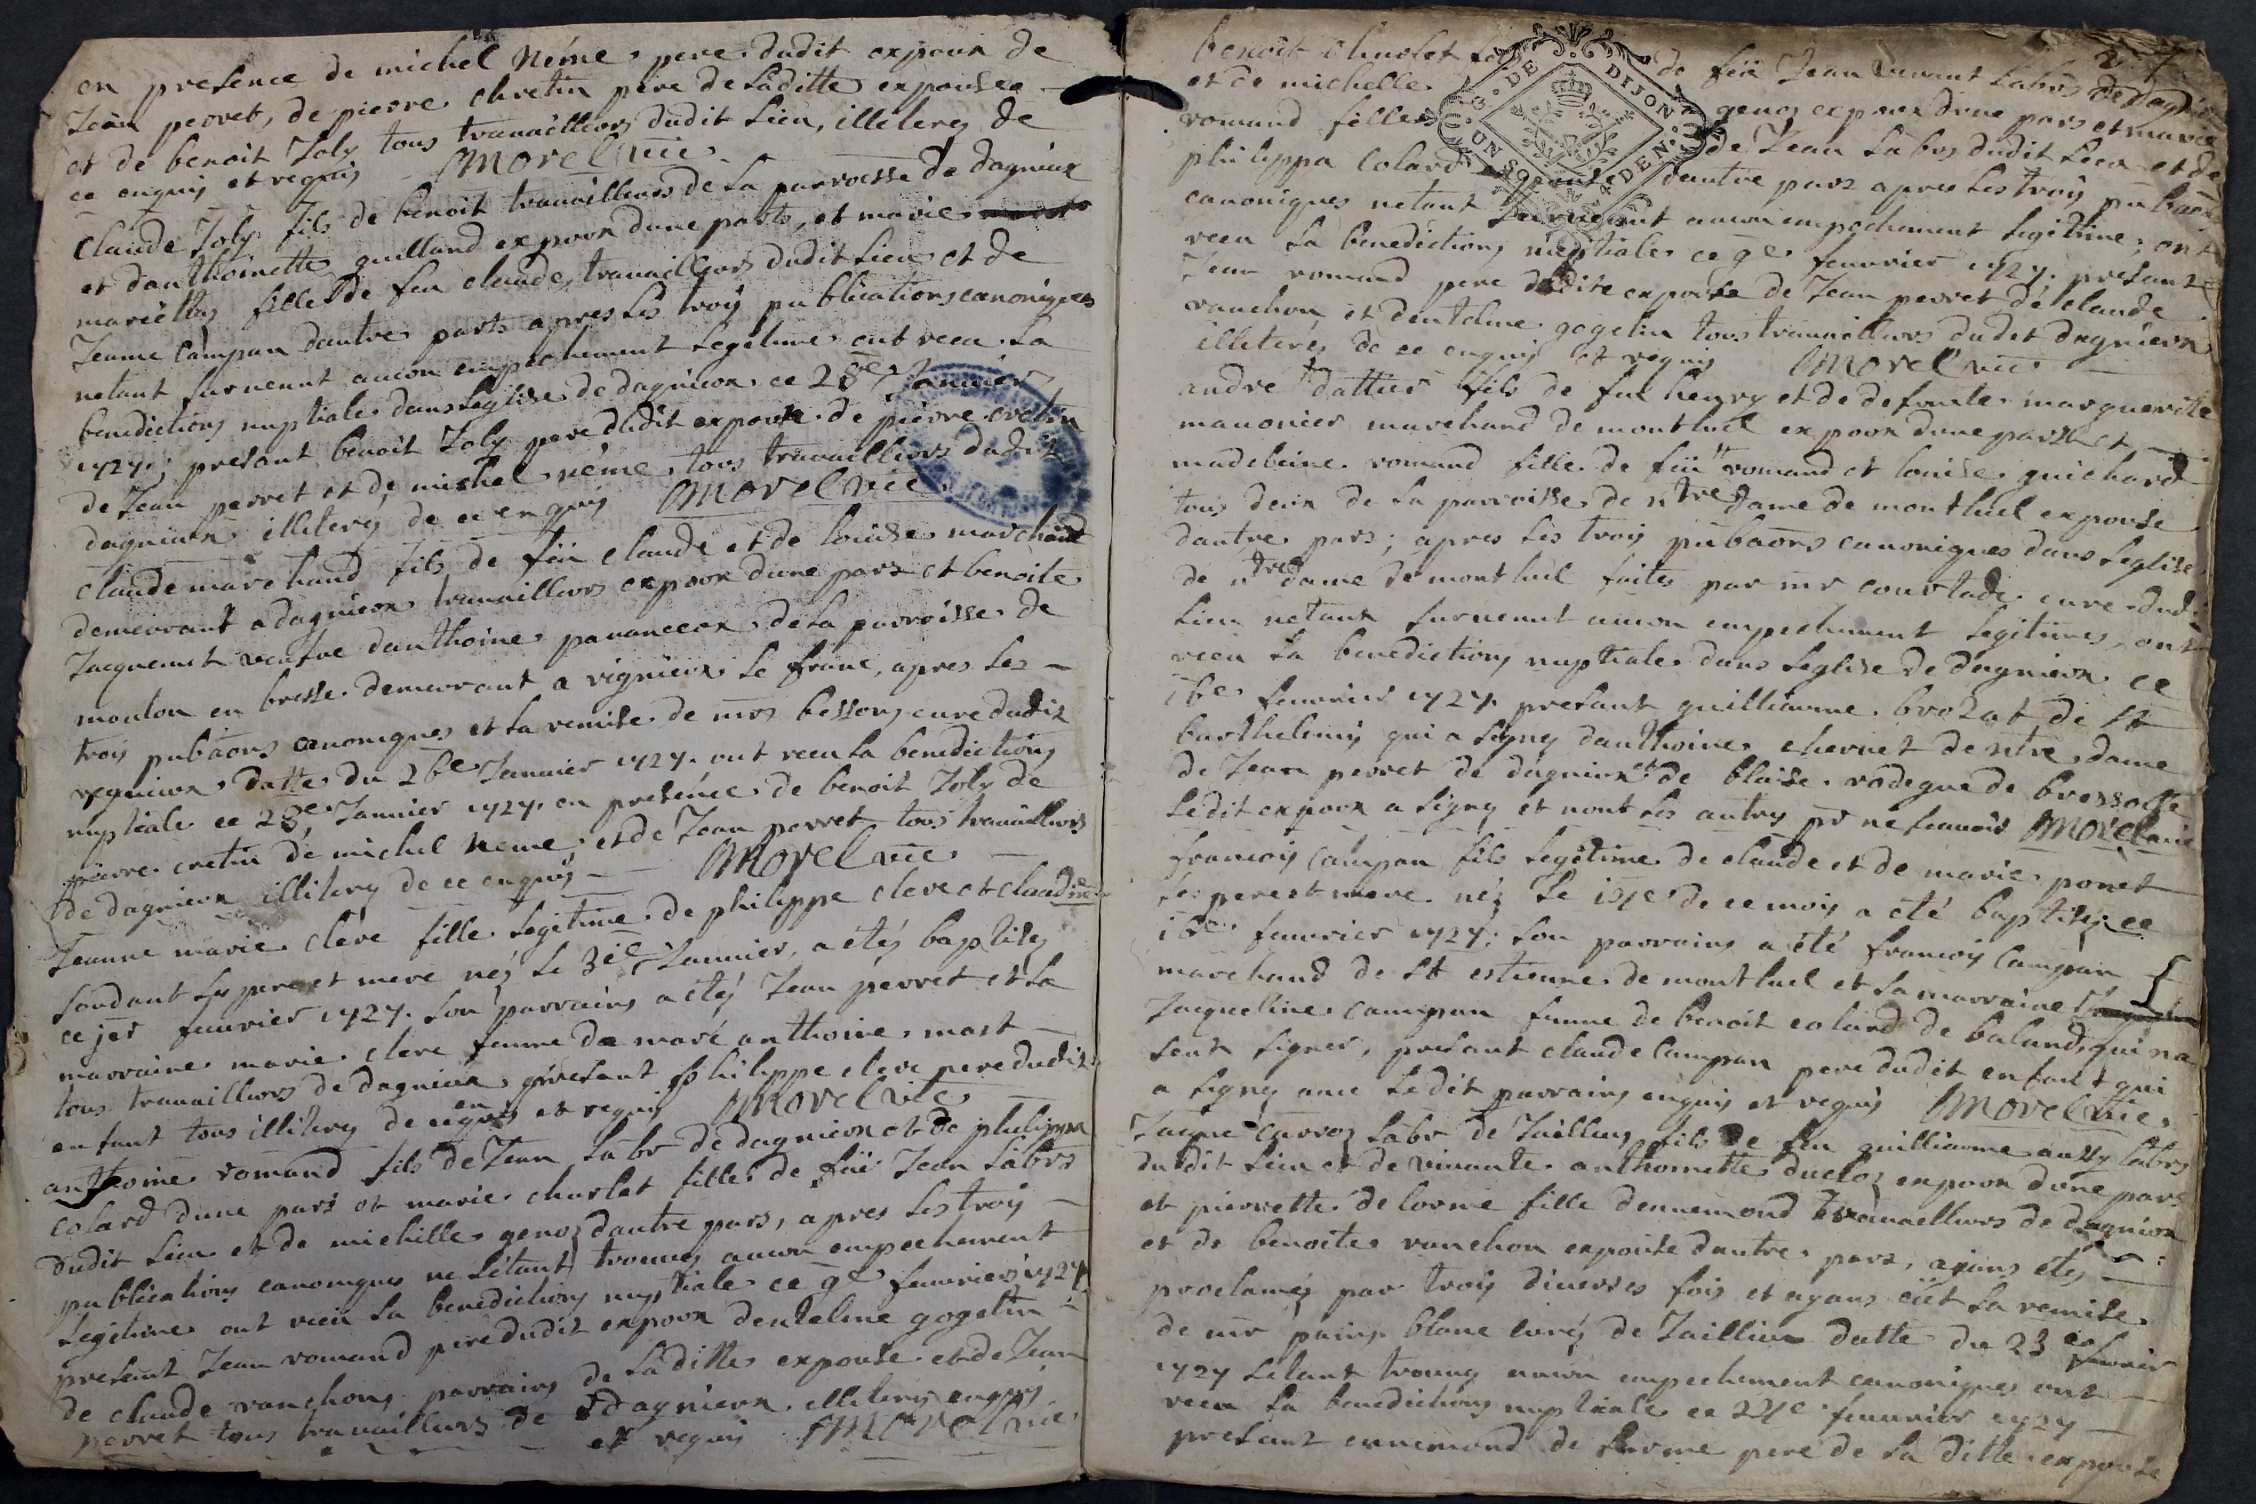 en presence de michel Néme pere dudit expoux de
Jean perret, de pierre chretin père de Laditte expousée
et de benoit Joly tous travailleurs dudit Lieu, illiterez de
ce enquis et requis Morel vic
Claude Joly fils de benoit travailleurs de La parroesse de dagnieux
et danthoinette guilland expoux dune parts, et marie
mariellas fille de feu claude travailleurs dudit Lieu et de
Jeanne Campan dautres parts apres Les troy publications canoniques
netant survenut aucun empechement Legitime ont receu La
benediction nuptiale dans Leglise de dagnieux ce 28e Janvier
1727; presant benoit Joly pere dudit expoux de pierre cretin
de Jean perret et de michel néme tous travailleurs dudit
dagnieux illiterez de ce enquis Morel vic
Claude marchand fils de feü claude et de louise marchand
demeurant a dagnieux travailleurs expoux dune pars et benoite
Jacquemet veufve danthoine pavanceon de La parroisse de
montou en bresse demeurant a rignieux Le franc, apres Les
trois pubaons canoniques et La remise de mrs besson cure dudit
regnieux datte du 26e Janvier 1727. ont receu La benediction
nuptiale ce 28e Janvier 1727. en presence de benoit Joly de
pierre cretin de michel neme et de Jean perret tous travailleurs
de dagnieux illiterez de ce enquis Morel vic
Jeanne marie cleve fille Legitime de philippe cleve et claudine
Sordant Ses pere et mere néz le 31e Janvier, a étéz baptisez
ce 1er feuvrier 1727. Son parrains a étéz Jean perret et La
marraine marie cleve femme de marc anthoine mast
tous travailleurs de dagnieux presant philippe cleve pere dudit
enfant tous illiterez de ce enquis et requis Morel vic
anthoine romand fils de Jean Labr de dagnieux et de philippa
colard dune pars et marie charlet fille de feü Jean Labrs
dudit Lieu et de michelle genoz dautre pars, apres Les troy
publications canoniques ne sétant trouvez aucun empechement
Legitime ont receu La benediction nuptiale ce 9e feuvrier 1727
presant Jean romand pere dudit expoux dentelme gogelin
de claude ranchons parrains de Laditte expouse et de Jean
perret tous travailleurs de dagnieux illiterez enquis
et requis Morel vic
benoit Charlet fils de feü Jean vivant Labrs de dagnieux
et de michelle genoz expoux dune pars et marie
romand fille de Jean Labrs dudit Lieu et de
philippa Colard expouse dautre pars apres Les troy pubaons
canoniques netant survenut aucun empechement Legitime, ont
receu La benediction nuptiale ce 9e feuvrier 1727. presant
Jean romand pere dudite expouse de Jean perret de claude
ranchon et dentelme gogelin tous travailleurs dudit dagnieux
illiterez de ce enquis et requis Morel vic
andre dattier fils de feu henry et de defunte marguerite
manonier marchand de montluel expoux dune pars et
madeleine romand fille de feü romand et louise guichard
tous deux de La parroisse de ntre dame de montluel expouse
dautre pars; apres Les troy pubaons canoniques dans Leglise
de ntre dame de montluel faites par mr courtade cure dudit
Lieu netant survenut aucun empechement Legitimes, ont
receu La benediction nuptiale dans Leglise de dagnieux ce
16e feuvrier 1727. presant guilliaume brozat de st
barthelemy qui a signy danthoine chernet de ntre dame
de Jean perret de dagnieux et de blaise rodegue de bressolle
Ledit expoux a signy et nont Les autres pr ne scavoir Morel vic
francois Campan fils Legitime de claude et de marie ponet
Ses pere et mere néz Le 15e de ce mois a été baptisez ce
16e feuvrier 1727; Son parrains a été francois Campan
marchand de st estienne de montluel et La marraine
Jacqueline campan femme de benoit colard de baland qui na
Seut signer, presant claude Campan pere dudit enfant qui
a signy avec Ledit parrains enquis et requis Morel vic
Jaque carroz Labr de Jaillieu fils de feu guilliaume aussy labrs
dudit Lieu et de vivante anthoinette ducloz expoux dune pars
et pierrette de lorme fille dennemond travailleurs de dagnieux
et de benoite ranchon expouse dautre pars, ayans étéz
proclaméz par troy diverses fois et ayans eüt La remise
de mr blanc curéz de Jaillieu datte du 23e feuvrier
1727 Setant trouvez aucun empechement canoniques ont
receu La benediction nuptiale ce 25e feuvrier 1727
presant ennemond de Lorme pere de La ditte expouse
DE DIJON
UN SOL 4 DEN.